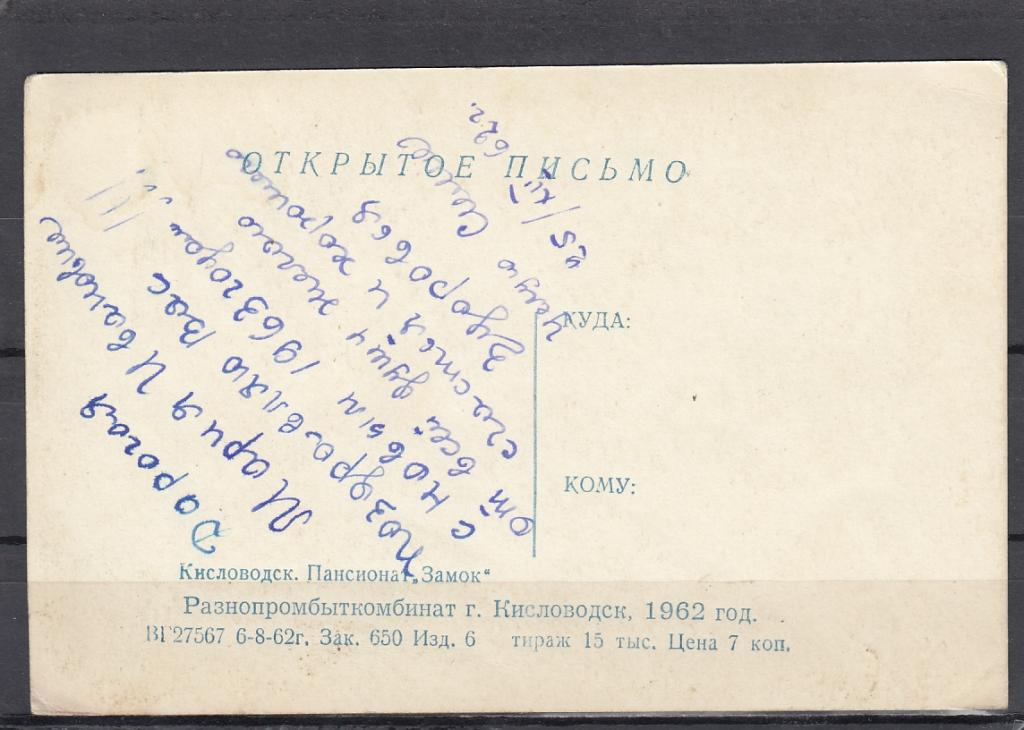 ОТКРЫТОЕ ПИСЬМО
Дорогая
Мария Ивановна
Поздравляю Вас
с новым 1963 годом"!!!
от всей души желаю
счастья и хорошего
здоровья
Целую
"5/XII 62 г.
КУДА:
КОМУ:
Кисловодск. Пансионат „Замок“
Разнопромбыткомбинат г. Кисловодск, 1962 год.
ВГ27567 6-8-62г. Зак. 650 Изд. 6 тираж 15 тыс. Цена 7 коп.